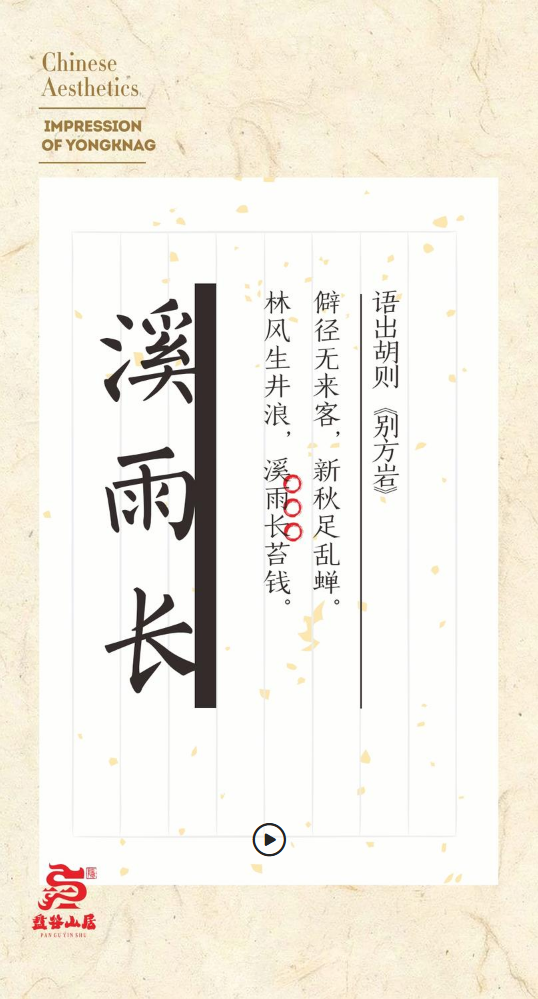 Chinese
Aesthetics
IMPRESSION
OF YONGKNAG
语出胡则《别方岩》
僻径无来客，新秋足乱蝉。
林风生井浪，溪雨长苔钱。
溪雨长
盘谷山居
PAN GU YIN SHU